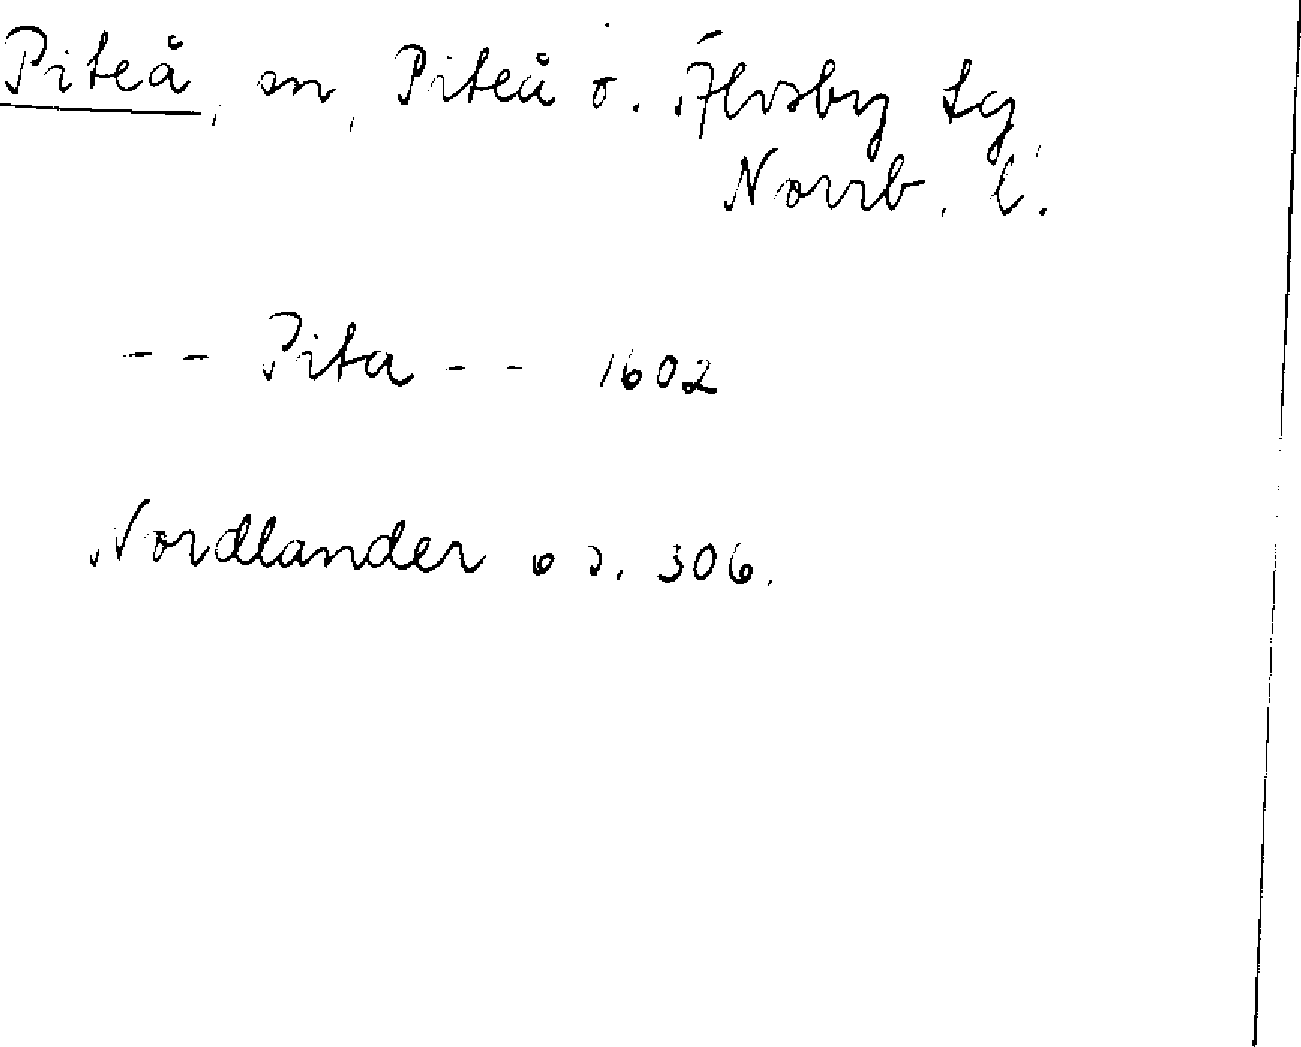 Piteå, sn, Piteå o. Älvsby tg
Norrb. l.
-- Pita -- 1602
Nordlander 6 s. 306.